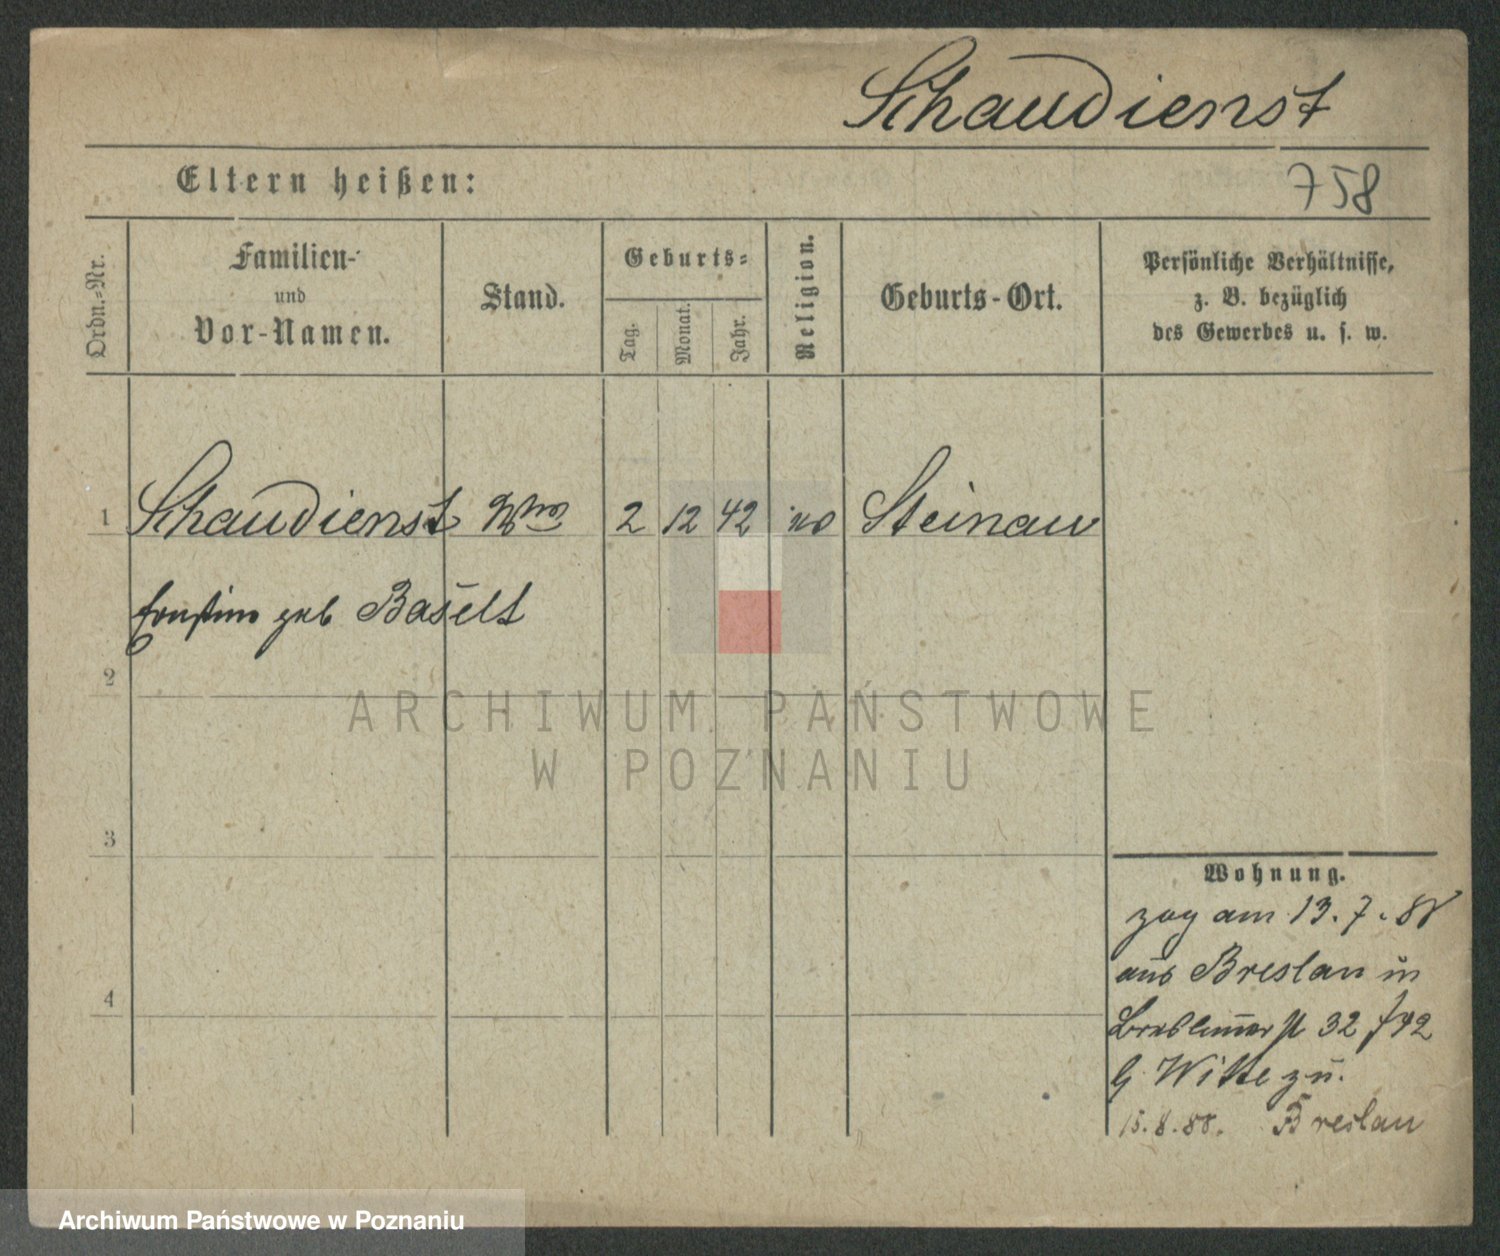 Schaudienst
Eltern heißen:
758
Ordn.-Nr.
Familien-
und
Vor-Namen.
Stand.
Geburts-
Tag.
Monat.
Jahr.
Religion.
Geburts-Ort.
Persönliche Verhältnisse,
z. B. bezüglich
des Gewerbes u. s. w.
1 Schaudienst Wwe 2 12 42 Steinau
Ernstine geb Baselt
2
3
4
Wohnung.
zog am 13.7.88
aus Breslau in
Breslauer 32 42
b/ Witte zu.
15.8.88. Breslau
ARCHIWUM PAŃSTWOWE
W POZNANIU
Archiwum Państwowe w Poznaniu